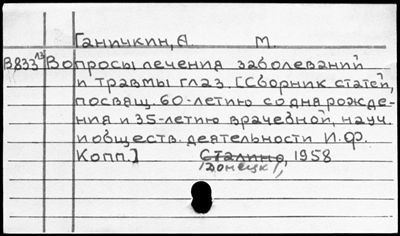 Ганичкин, А. М.
В833 13 Вопросы лечения заболеваний
и травмы глаз. [Сборник статей,
посвящ. 60-летию со дня рожде-
ния и 35-летию врачебной, науч.
и обществ. деятельности И. Ф.
Копп.] Сталино, 1958
/Донецк/,